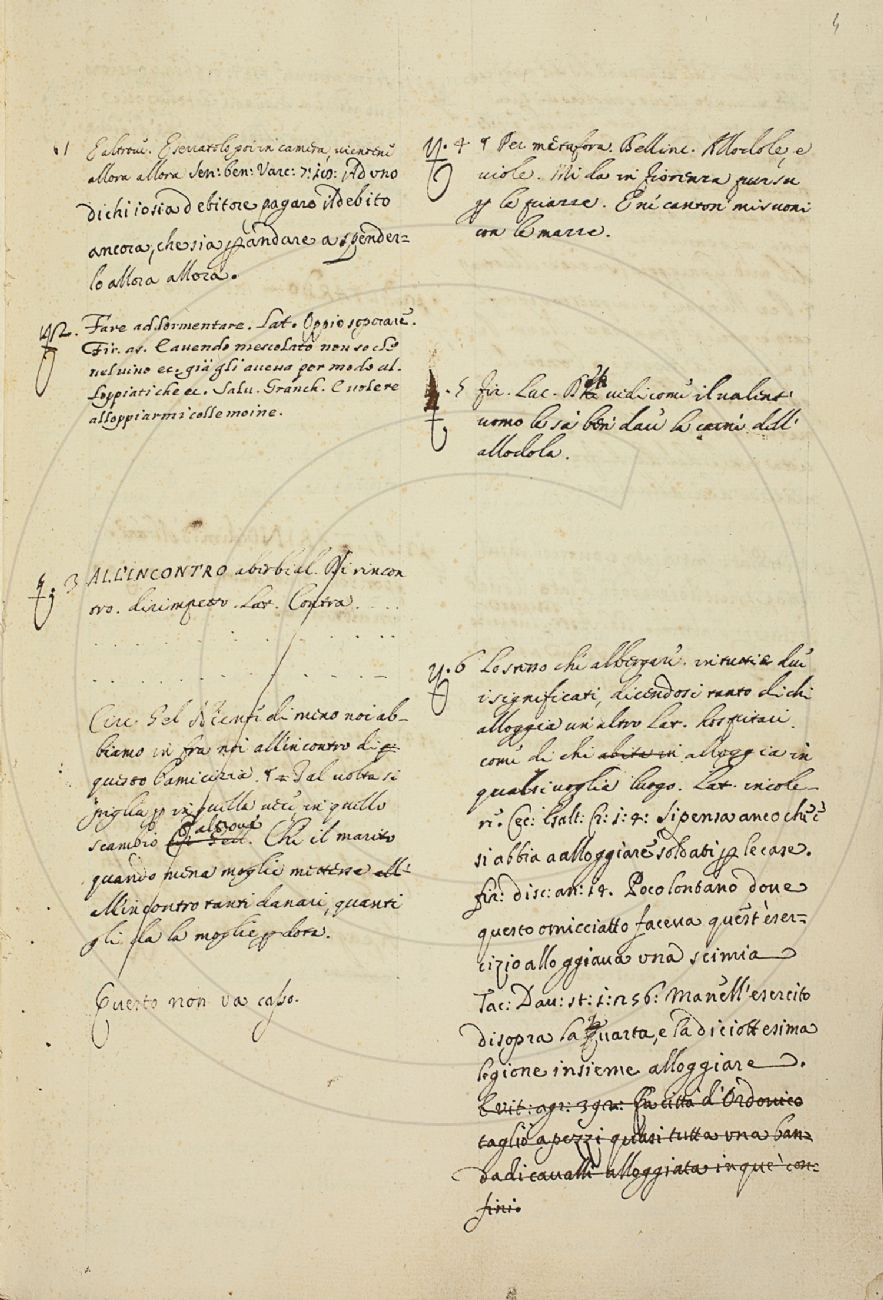 4
1 E altrove. E serratolo poi in camera, viemene
allora allora Sen: ben: Varc: 7: 10: Ad uno
di chi io sia debitore pagare il debito
ancora, che sia p andare a spender-
lo allora allora.
2. Fare addormentare. Lat. Oppio soporare.
Fir. as. E avendo mescolato non so che
nel vino ec. già gli aveva per modo al-
loppiati che ec. Salv. Granch. E volere
alloppiarmi colle moine.
3 ALL'INCONTRO averbial. Di rincon
tro. dirimpetto. Lat. Contra. . . .
Circ. Gel.
biamo in fra noi all'incontro di
questo l'amicizia. Tal volta si
piglia p in quella vece in quello
scambio Che il marito
quando mena moglie metterse all'
all'incontro tanti danari, quanti
gli da la moglie p dota.
Questo non va casso.
4 Per metafora. Bellinc. Allodole, e
viole. Mi da in fiorenza pur su
p le piazze. E ne canton mi suoni
con le marre.
5 Fir. Luc. vidi come il valent'
uomo le sa ben dare la carne dell'
allodola.
6 Lo stesso che albergare. in tutti e due
i significati, dicendosi tanto di chi
alloggia un'altro Lat. hospitari.
come di chi abita in alloggia in
qualsivoglia luogo. Lat. incole-
re. Cec: Esalt: Cr: 1: 4: Si pensa anco che e'
si abbia a alloggiare soldati p le case.
Fir: disc: an: 14. Poco lontano dove
questo omicciatto faceva quest'eser-
cizio alloggiava una scimia
Tac: Dav: st: 1: 256: Ma nell'esercito
di sopra la quarta, e la diciottesima
legione insieme alloggiare.
E vit: agr: 392: Fu città d'Ordovico
tagliò a pezzi quasi tutta una ban-
da di cavalli alloggiata in que' con-
fini.